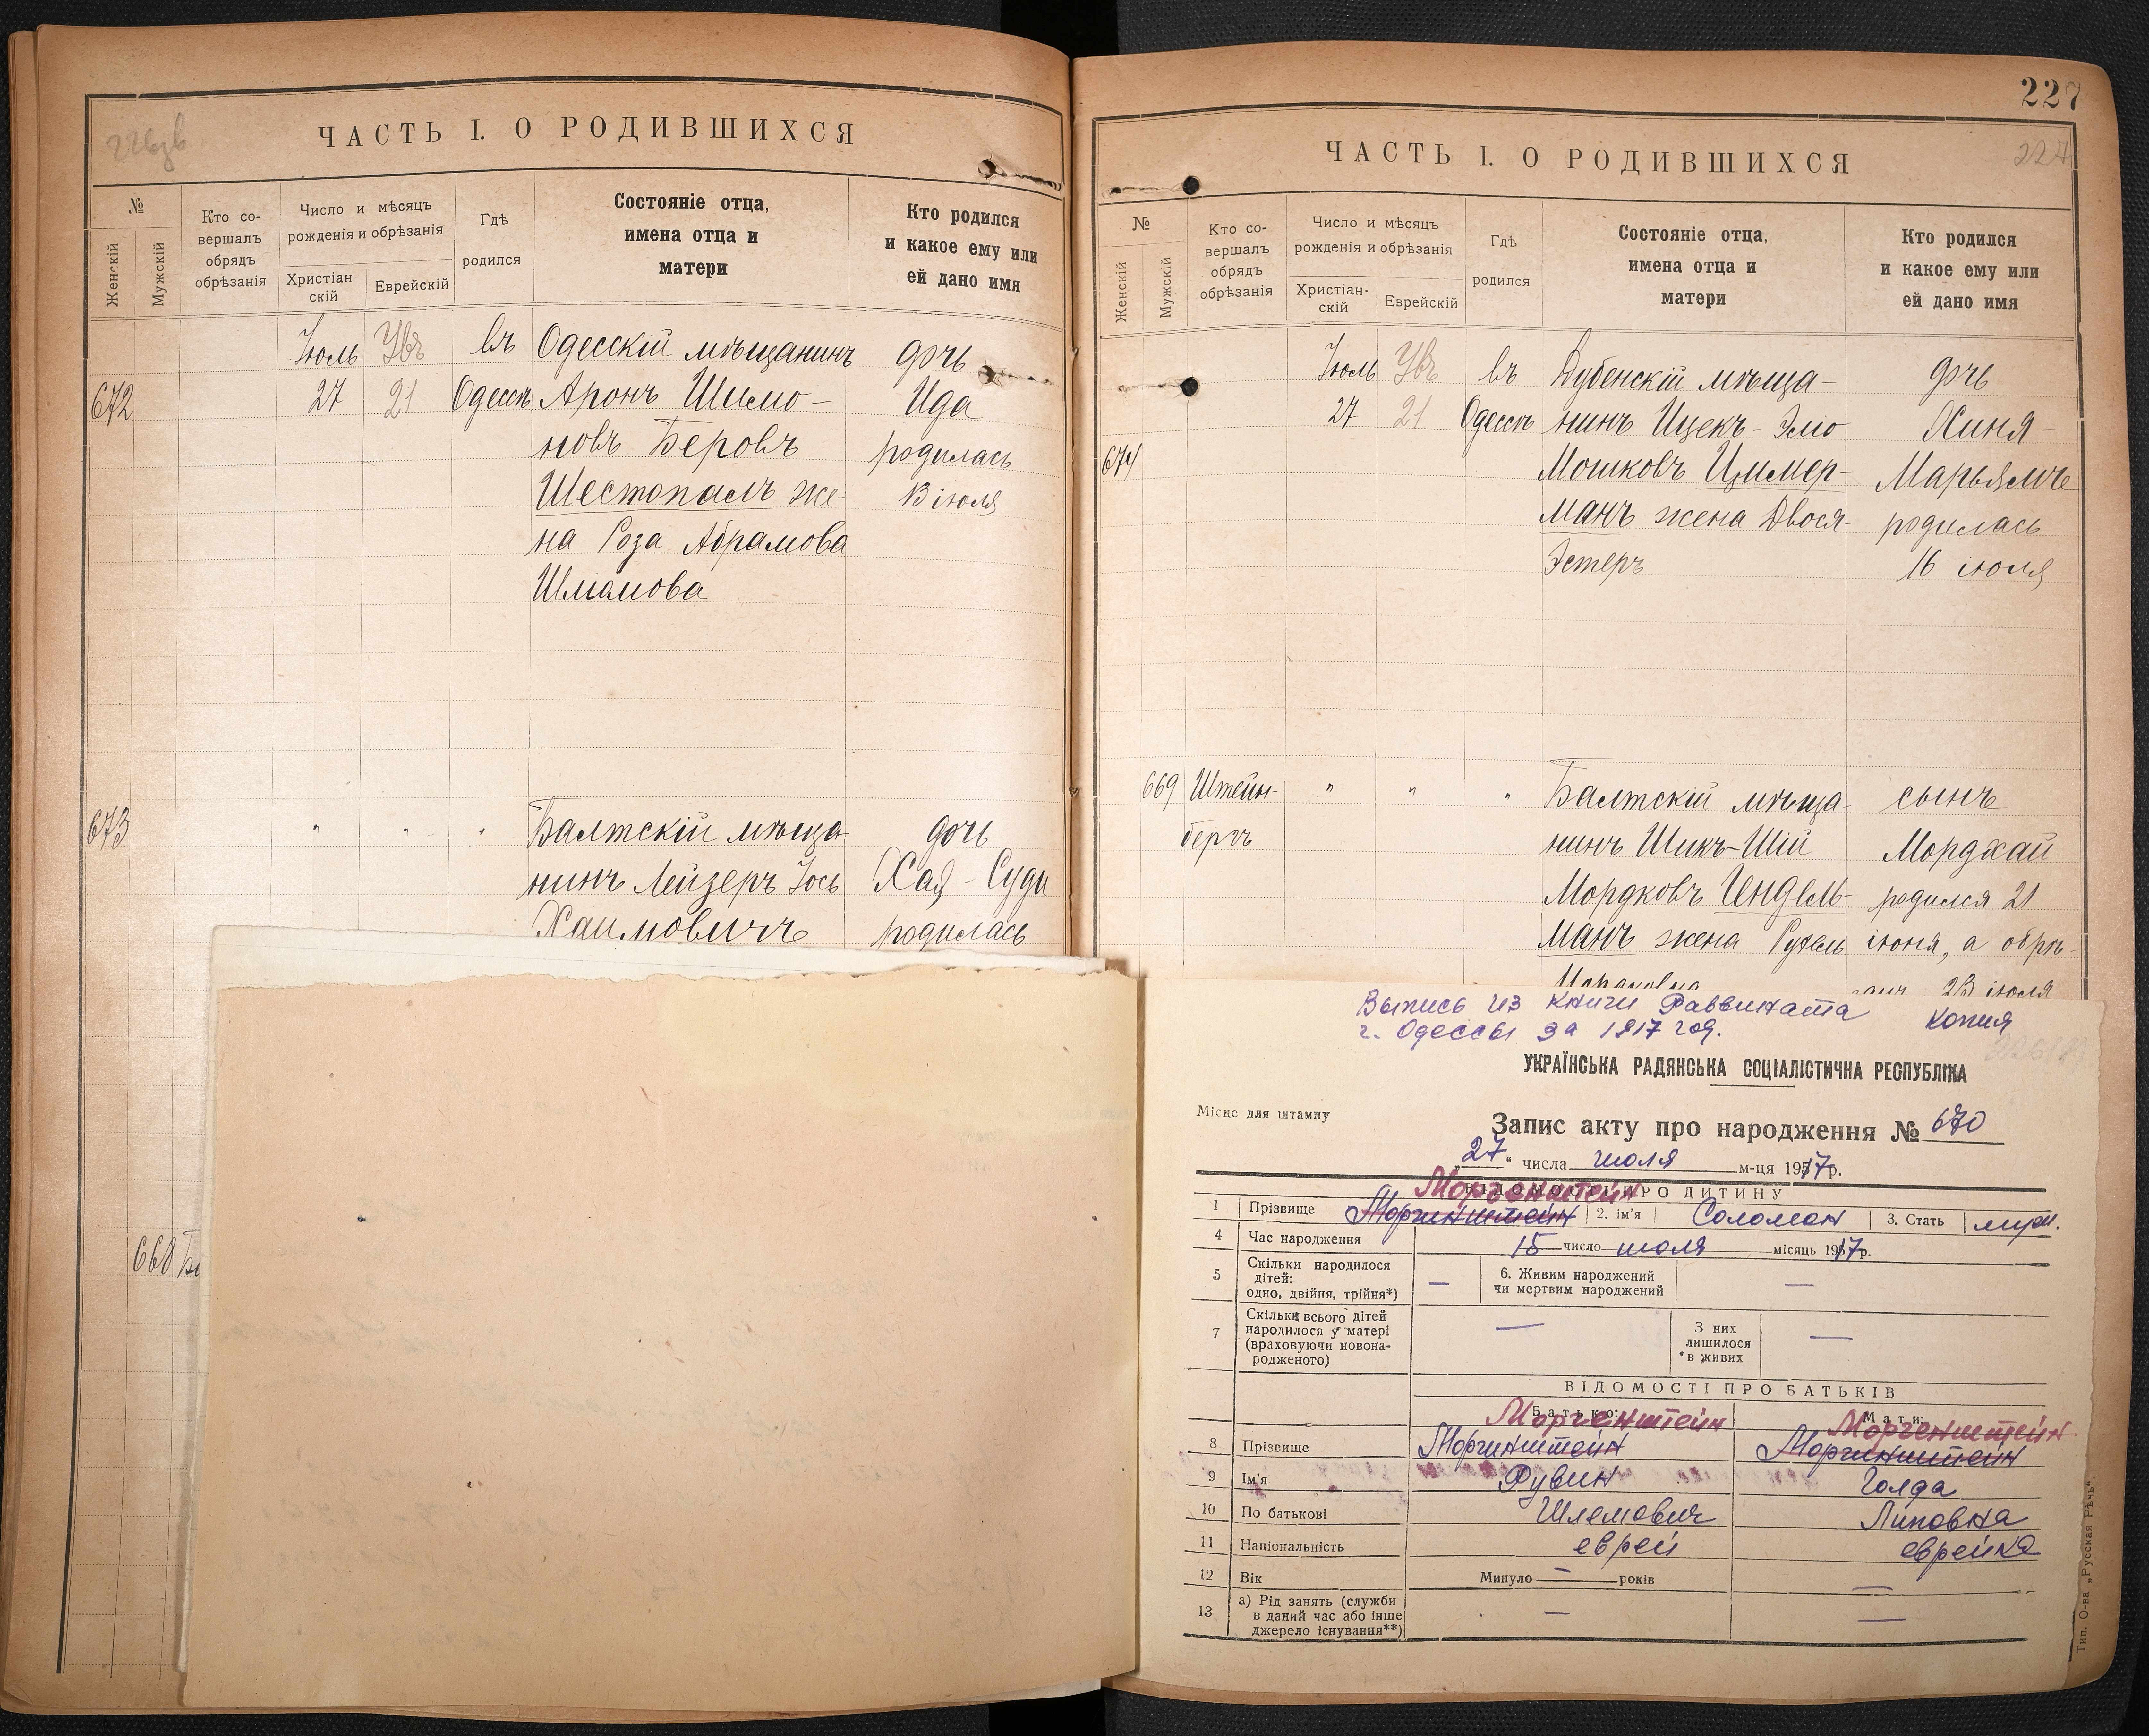 226зв
ЧАСТЬ I. О РОДИВШИХСЯ
№
Женскій
Мужскій
Кто со-
вершалъ
обрядъ
обрѣзанія
Число и мѣсяцъ
рожденія и обрѣзанія
Христіан
скій
Еврейскій
Гдѣ
родился
Состояніе отца,
имена отца и
матери
Кто родился
и какое ему или
ей дано имя
ІюльУвъ въ Одесскій мѣщанинъ дочь
672 27 21 Одессѣ Аронъ Шимо- Ида
новъ Беровъ родилась
Шестопалъ же- 13 іюля
на Роза Абрамова
673 " " " Балтскій мѣща- дочь
нинъ Лейзеръ Іось Хая-Суди
Хаимовичъ родилась
668
227
ЧАСТЬ I. О РОДИВШИХСЯ
№
Женскій
Мужскій
Кто со-
вершалъ
обрядъ
обрѣзанія
Число и мѣсяцъ
рожденія и обрѣзанія
Христіан-
скій
Еврейскій
Гдѣ
родился
Состояніе отца,
имена отца и
матери
Кто родился
и какое ему или
ей дано имя
Іюль Увъ въ Дубенскій мѣща- дочь
27 21 Одессѣ нинъ Ицекъ-Элю Хиня-
674 Мошковъ Цимер- Марьямъ
манъ жена Двося- родилась
Эстеръ 16 іюля
669 Штейн- " " " Балтскій мѣща- сынъ
бергъ нинъ Шикъ-Шій Мордхай
Мордковъ Гендель- родился 21
манъ жена Рухель іюня, а обрѣ-
занъ 28 іюля
Выпись из книги Раввината Копия
г. Одессы за 1917 год.
УКРАЇНСЬКА РАДЯНСЬКА СОЦІАЛІСТИЧНА РЕСПУБЛІКА
Місце для штампу
Запис акту про народження № 670
„27“ числа июля м-ця 1917р.
ВІДОМОСТІ ПРО ДИТИНУ
Моргенштейн
1 Прізвище Моргинштейн 2. ім'я Соломон 3. Стать муж.
4 Час народження 15 число июля місяць 1917р.
5 Скільки народилося
дітей:
одно, двійня, трійня*) — 6. Живим народжений
чи мертвим народжений —
7 Скільки всього дітей
народилося у матері
(враховуючи новона-
родженого) — З них
лишилося
в живих —
ВІДОМОСТІ ПРО БАТЬКІВ
Батько: Мати:
Моргенштейн Моргенштейн
8 Прізвище Моргинштейн Моргинштейн
9 Ім'я Рувин Голда
10 По батькові Шлемович Липовна
11 Національність еврей еврейка
12 Вік Минуло — років —
13 а) Рід занять (служби
в даний час або інше
джерело існування**) — —
Тип. О-ва „Русская Рѣчь“.